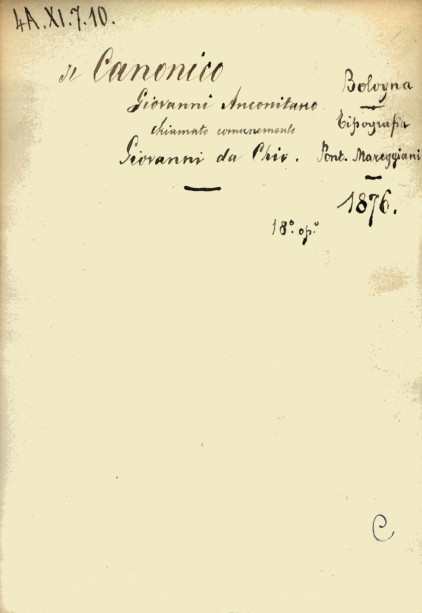 4A.XI.7.10.
Il Canonico
Giovanni Anconitano
chiamato comunemente
Giovanni da Chio.
Bologna
Tipografia
Pont. Mareggiani
1876.
18° op.°
C